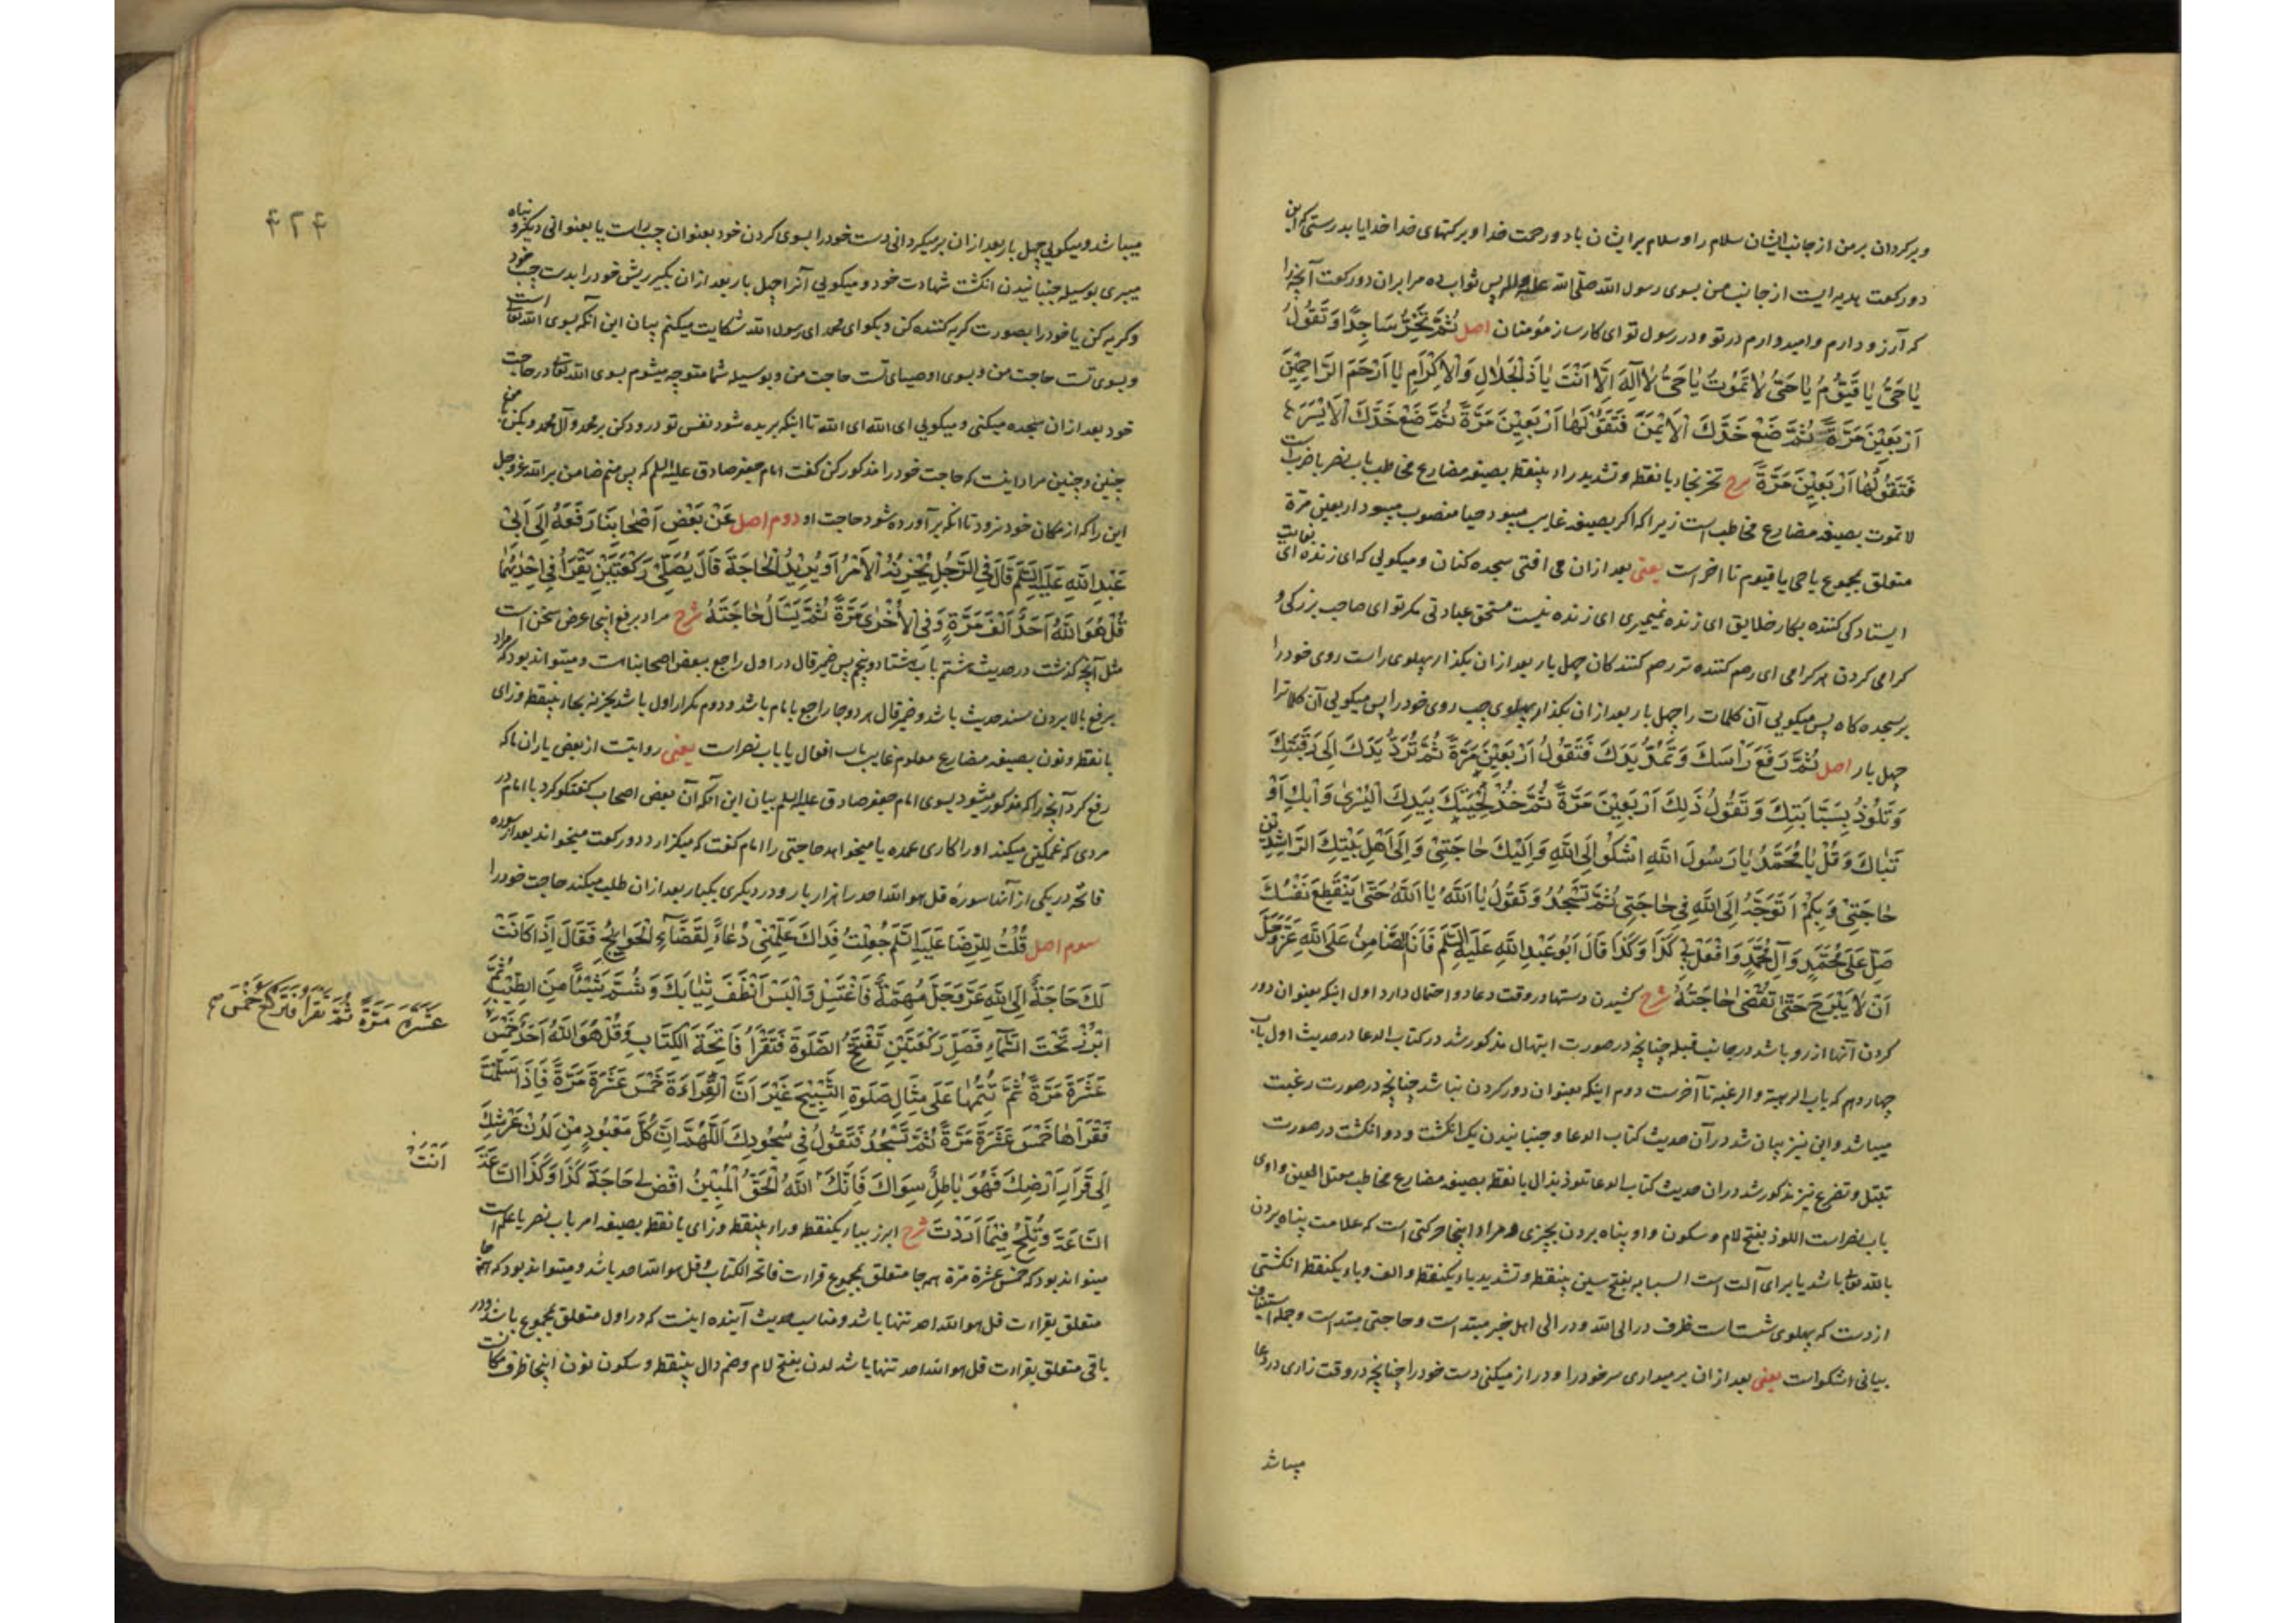 وبرکردان بر من از جانب ایشان سلام را و سلام بر ایشان باد و رحمت خدا و برکتهای خدا خدایا بدرستی که این
دو رکعت هدیه ایست از جانب من بسوی رسول الله صلی الله علیه وآله پس ثواب ده مرا بران دو رکعت آنچه را
که آرزو دارم و امید دارم در تو و در رسول تو ای کارساز مؤمنان اصل ثُمَّ تَخِرُّ سَاجِدًا وَتَقُولُ
یَا حَیُّ یَا قَیُّومُ یَا حَیُّ لَا تَمُوتُ یَا حَیُّ لَا اِلٰهَ اِلَّا اَنْتَ یَا ذَا الْجَلَالِ وَالْاِکْرَامِ یَا اَرْحَمَ الرَّاحِمِیْنَ
اَرْبَعِیْنَ مَرَّةً ثُمَّ ضَعْ خَدَّكَ الْاَیْمَنَ فَتَقُوْلُهَا اَرْبَعِیْنَ مَرَّةً ثُمَّ ضَعْ خَدَّكَ الْاَیْسَرَ
فَتَقُوْلُهَا اَرْبَعِیْنَ مَرَّةً شرح تخر بخاء با نقطه و تشدید راء بینقطه بصیغه مضارع مخاطب باب نصر یا ضرب است
لا تموت بصیغه مضارع مخاطب است زیرا که اکر بصیغه غایب میبود حیا منصوب میبود اربعین مرّة
متعلق بمجموع یا حی یا قیوم تا اخر است یعنی بعد ازان می افتی سجده کنان و میکویی که ای زنده ای بغایت
ایستادکی کننده بکار خلایق ای زنده نمیمیری ای زنده نیست مستحق عبادتی مکر تو ای صاحب بزرکی و
کرامی کردن هر کرامی ای رحم کننده تر رحم کنندکان چهل بار بعد ازان بکذار پهلوی راست روی خود را
بر سجده کاه پس میکویی آن کلمات را چهل بار بعد ازان بکذار پهلوی چپ روی خود را پس میکویی آن کلمات را
چهل بار اصل ثُمَّ تَرْفَعُ رَأْسَكَ وَتَمُدُّ یَدَكَ فَتَقُولُ اَرْبَعِیْنَ مَرَّةً ثُمَّ تَرُدُّ یَدَكَ اِلَی رَقَبَتِكَ
وَتَلُوْذُ بِسَبَّابَتِكَ وَتَقُولُ ذٰلِكَ اَرْبَعِیْنَ مَرَّةً ثُمَّ خُذْ لِحْیَتَكَ بِیَدِكَ الْیُسْرٰی وَابْكِ اَوْ
تَبَاكَ وَقُلْ یَا مُحَمَّدُ یَا رَسُولَ اللهِ اَشْکُوْ اِلَی اللهِ وَاِلَیْكَ حَاجَتِیْ وَاِلَی اَهْلِ بَیْتِكَ الرَّاشِدِیْنَ
حَاجَتِیْ وَبِکُمْ اَتَوَجَّهُ اِلَی اللهِ فِی حَاجَتِی ثُمَّ تَسْجُدُ وَتَقُولُ یَا اَللهُ یَا اَللهُ حَتّٰی یَنْقَطِعَ نَفَسُكَ
صَلِّ عَلَی مُحَمَّدٍ وَآلِ مُحَمَّدٍ وَافْعَلْ بِیْ کَذَا وَکَذَا قَالَ اَبُو عَبْدِ اللهِ عَلَیْهِ السَّلَمُ فَاَنَا الضَّامِنُ عَلَی اللهِ عَزَّ وَجَلَّ
اَنْ لَا یَبْرَحَ حَتّٰی تُقْضٰی حَاجَتُهُ شرح کشیدن دستها در وقت دعا دو احتمال دارد اول اینکه بعنوان دور
کردن آنها از رو باشد در جانب قبله چنانچه در صورت ابتهال مذکور شد در کتاب الدعا در حدیث اول باب
چهاردهم که باب الرهبة و الرغبه تا آخرست دوم اینکه بعنوان دور کردن نباشد چنانچه در صورت رغبت
میباشد و این نیز بیان شد در آن حدیث کتاب الدعا و جنبانیدن یک انکشت و دو انکشت در صورت
تبتل و تضرع نیز مذکور شد دران حدیث کتاب الدعا تلوذ بذال با نقطه بصیغه مضارع مخاطب معتل العین واوی
باب نصر است اللوذ بفتح لام و سکون واو پناه بردن بچیزی و مراد اینجا حرکتی است که علامت پناه بردن
بالله تعالی باشد با برای آلت است السبابه بفتح سین بینقطه و تشدید باء یکنقطه و الف و باء یکنقطه انکشتی
از دست که پهلوی شست است ظرف در الی الله و در الی اهل خبر مبتداست و حاجتی مبتداست و جمله استیناف
بیانی اشکو است یعنی بعد ازان برمیداری سر خود را و دراز میکنی دست خود را چنانچه در وقت زاری در دعا
میباشد
۴۲۴
میباشد و میکویی چهل بار بعد ازان برمیکردانی دست خود را بسوی کردن خود بعنوان چپ راست یا بعنوانی دیکر و پناه
میبری بوسیله جنبانیدن انکشت شهادت خود و میکویی آنرا چهل بار بعد ازان بکیر ریش خود را بدست چپ خود
و کریه کن یا خود را بصورت کریه کننده کن و بکو ای محمد ای رسول الله شکایت میکنم بیان این آنکه بسوی الله تعالی است
و بسوی تست حاجت من و بسوی اوصیای تست حاجت من و بوسیله شما متوجه میشوم بسوی الله تعالی در حاجت
خود بعد ازان سجده میکنی و میکویی ای الله ای الله تا اینکه بریده شود نفس تو درود کن بر محمد و آل محمد و بکن بمن
چنین و چنین مراد اینست که حاجت خود را مذکور کن کفت امام جعفر صادق علیه السلم که پس منم ضامن بر الله عزوجل
این را که از مکان خود نرود تا انکه برآورده شود حاجت او دوم اصل عَنْ بَعْضِ اَصْحَابِنَا رَفَعَهُ اِلَی اَبِیْ
عَبْدِ اللهِ عَلَیْهِ السَّلَمُ قَالَ فِی الرَّجُلِ یُحْزِنُهُ الْاَمْرُ اَوْ یُرِیْدُ الْحَاجَةَ قَالَ یُصَلِّیْ رَکْعَتَیْنِ یَقْرَأُ فِی اِحْدٰیهُمَا
قُلْ هُوَ اللهُ اَحَدٌ اَلْفَ مَرَّةٍ وَفِی الْاُخْرٰی مَرَّةً ثُمَّ یَسْأَلُ حَاجَتَهُ شرح مراد برفع اینجا عرض سخن است
مثل آنچه کذشت در حدیث هشتم باب هشتاد و پنجم پس ضمیر قال در اول راجع ببعض اصحابنا است و میتواند بود که مراد
برفع بالا بردن سند حدیث باشد و ضمیر قال هر دو جا راجع بامام باشد و دوم تکرار اول باشد یحزنه بحاء بینقطه و زای
با نقطه و نون بصیغه مضارع معلوم غایب باب افعال یا باب نصر است یعنی روایتست از بعض یاران ما که
رفع کرد آنچه را که مذکور میشود بسوی امام جعفر صادق علیه السلم بیان این آنکه آن بعض اصحاب کفتکو کرد با امام در
مردی که غمکین میکند او را کاری عمده یا میخواهد حاجتی را امام کفت که میکزارد دو رکعت میخواند بعد از سوره
فاتحه در یکی از آنها سوره قل هو الله احد را هزار بار و در دیکری یکبار بعد ازان طلب میکند حاجت خود را
سوم اصل قُلْتُ لِلرِّضَا عَلَیْهِ السَّلَمُ جُعِلْتُ فِدَاكَ عَلِّمْنِیْ دُعَاءً لِقَضَاءِ الْحَوَائِجِ فَقَالَ اِذَا کَانَتْ
لَكَ حَاجَةٌ اِلَی اللهِ عَزَّ وَجَلَّ مُهِمَّةٌ فَاغْتَسِلْ وَالْبَسْ اَنْظَفَ ثِیَابِكَ وَشُمَّ شَیْئًا مِنَ الطِّیْبِ ثُمَّ
ابْرُزْ تَحْتَ السَّمَاءِ فَصَلِّ رَکْعَتَیْنِ تَفْتَتِحُ الصَّلٰوةَ فَتَقْرَأُ فَاتِحَةَ الْکِتَابِ وَقُلْ هُوَ اللهُ اَحَدٌ خَمْسَ
عَشَرَةَ مَرَّةً ثُمَّ تَقْرَأُ فَتَرْکَعُ خَمْسَ
عَشَرَةَ مَرَّةً ثُمَّ تُتِمُّهَا عَلَی مِثَالِ صَلٰوةِ التَّسْبِیْحِ غَیْرَ اَنَّ الْقِرَاءَةَ خَمْسَ عَشَرَةَ مَرَّةً فَاِذَا سَلَّمْتَ
فَقْرَأْهَا خَمْسَ عَشَرَةَ مَرَّةً ثُمَّ تَسْجُدُ فَتَقُولُ فِی سُجُودِكَ اَللّٰهُمَّ اِنَّ کُلَّ مَعْبُودٍ مِنْ لَدُنْ عَرْشِكَ
اِلَی قَرَارِ اَرْضِكَ فَهُوَ بَاطِلٌ سِوَاكَ فَاِنَّكَ اللهُ الْحَقُّ الْمُبِیْنُ اقْضِ لِی حَاجَةَ کَذَا وَکَذَا السَّاعَةَ
اَنْتَ
السَّاعَةَ وَتُلِحُّ فِیْمَا اَرَدْتَ شرح ابرز بباء یکنقطه و راء بینقطه و زای با نقطه بصیغه امر باب نصر یا علم است
میتواند بود که خمس عشرة مرّة همه جا متعلق بمجموع قرائت فاتحة الکتاب و قل هو الله احد باشد و میتواند بود که همه جا
متعلق بقرائت قل هو الله احد تنها باشد و مناسب حدیث آینده اینست که در اول متعلق بمجموع باشد و در
باقی متعلق بقرائت قل هو الله احد تنها باشد لدن بفتح لام و ضم دال بینقطه و سکون نون اینجا ظرف مکانست